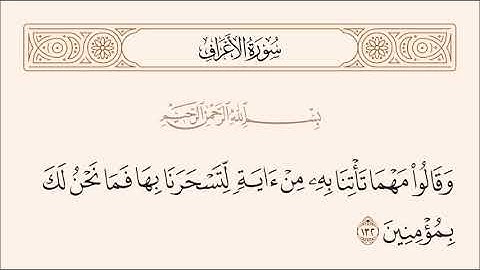 سُورَةُ الأَعْرَافِ
بِسْمِ اللَّهِ الرَّحْمَٰنِ الرَّحِيمِ
وَقَالُوا۟ مَهْمَا تَأْتِنَا بِهِۦ مِنْ ءَايَةٍ لِّتَسْحَرَنَا بِهَا فَمَا نَحْنُ لَكَ
بِمُؤْمِنِينَ ١٣٢